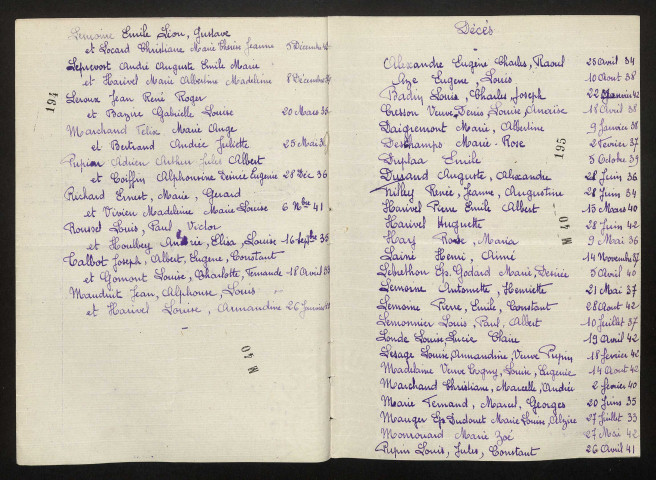 Lemoine Emile Léon, Gustave
et Locard Christiane Marie Thérèse Jeanne 5 Décembre 42
Leprevost André Auguste Emile Marie
et Harivel Marie Albertine Madeleine 8 Décembre
194
Leroux Jean René Roger
et Bazire Gabrielle Louise 20 Mars 36
Marchand Felix Marie Ange
et Bertrand Andrée Juliette 25 Mai 36
Pupin Adrien Arthur Jules Albert
et Coiffin Alphonsine Désirée Eugénie 28 Déc 36
Richard Ernest, Marie, Gerard
et Vivien Madeleine Marie Louise 6 Nbre 41
Roussel Louis, Paul Victor
et Houlbey Elisa, Louise 16 Septbre 36
Talbot Joseph, Albert, Eugene, Constant
et Gomont Louise, Charlotte, Fernande 18 Avril 38
Mauduit Jean, Alphonse, Louis
et Harivel Louise, Armandine 26 Janvier
M 40
Décès
Alexandre Eugène Charles, Raoul 25 Avril 34
Aze Eugene, Louis 10 Aout 38
Badin Louis, Charles Joseph 22 Janvier 42
Cresson Veuve Denis, Louise 18 Avril 38
Daigremont Marie, Albertine 9 Janvier 38
Deschamps Marie-Rose 2 Février 37
195
Duplaa Emile 5 Octobre 39
Durand Auguste, Alexandre 28 Juin 36
Renée, Jeanne, Augustine 28 Juin 34
Harivel Pierre Emile Albert 15 Mars 40
Harivel Huguette 28 Juin 42
M 40
Rose, Maria 9 Mai 36
Lainé Henri, Aimé 14 Novembre 37
Lebrethon Ep. Godard Marie, Désirée 5 Avril 40
Lemoine Antoinette, Henriette 21 Mai 37
Lemoine Pierre, Emile, Constant 28 Aout 42
Lemonnier Louis, Paul, Albert 10 Juillet 37
Londe Louise, Lucie Claire 19 Avril 42
Lesage Louise, Armandine, Veuve Pupin 18 février 42
Madelaine Veuve Louise, Eugénie 14 Aout 42
Marchand Christiane, Marcelle, Andrée 2 février 40
Marie Fernand, Marcel, Georges 20 Juin 35
Mauger Ep. Dudouet Marie Louise, Alzire 27 Juillet 33
Marie Zoé 27 Mai 42
Pupin Louis, Jules, Constant 26 Avril 41